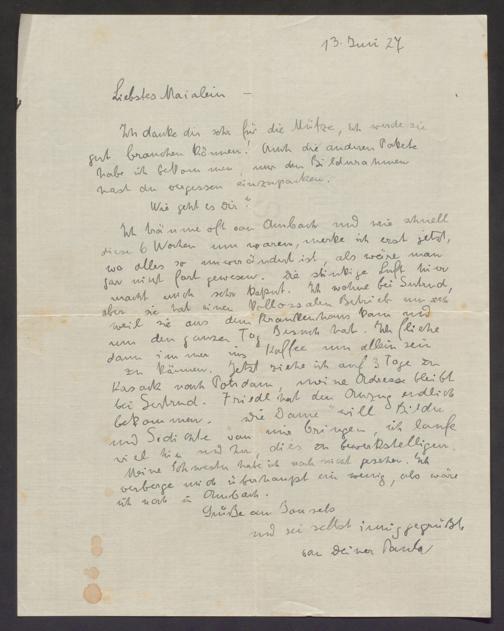 13. Juni 27
Liebstes Maialein –
Ich danke dir sehr für die Mütze, ich werde sie
gut brauchen können! Auch die anderen Pakete
habe ich bekommen, nur den Bilderrahmen
hast du vergessen einzupacken.
Wie geht es Dir?
Ich träume oft von Ambach und wie schnell
diese 6 Wochen um waren, merke ich erst jetzt,
wo alles so unverändert ist, als wäre man
gar nicht fort gewesen. Die stinkige Luft hier
macht mich sehr kaput. Ich wohne bei Gertrud,
aber sie hat einen kollossalen Betrieb um sich
weil sie aus dem Krankenhaus kam und
nun den ganzen Tag Besuch hat. Ich fliehe
dann immer ins Kaffee um allein sein
zu können. Jetzt ziehe ich auf 3 Tage zu
Kasack nach Potsdam, meine Adresse bleibt
bei Gertrud. Friedl hat den Anzug endlich
bekommen. "Die Dame" will Bilder
und Gedichte von mir bringen, ich laufe
viel hin und her, dies zu bewerkstelligen.
Meine Schwester habe ich noch nicht gesehen. Ich
verberge mich überhaupt ein wenig, als wäre
ich noch in Ambach.
Grüße an Bonsels
und sei selbst innig gegrüßt
von Deiner Paula